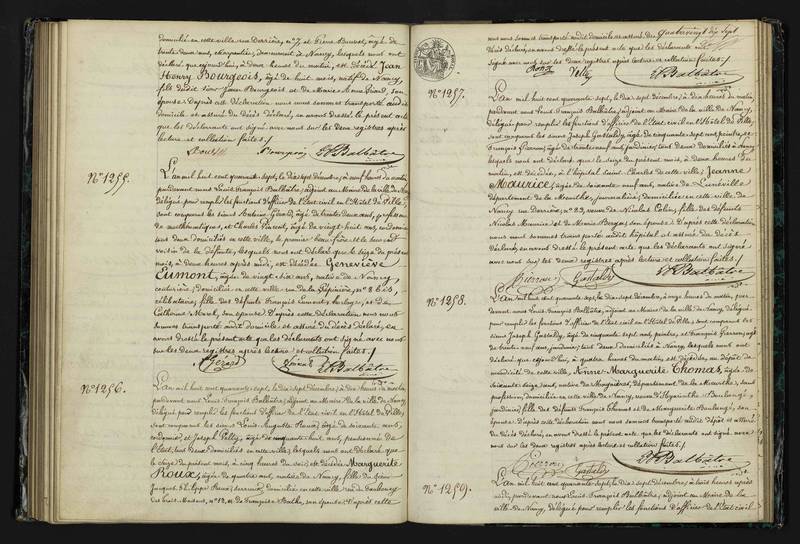 domicilié en cette ville rue Derrière, n° 7, et Pierre Bousset, âgé de
trente deux ans, charpentier, demeurant à Nancy, lesquels nous ont
déclaré que aujourd'hui, à deux heures du matin, est décédé Jean
Henry Bourgeois, âgé de huit mois, natif de Nancy,
fils dudit sieur Jean Bourgeois et de Marie Anne Girard, son
épouse. D'après cette déclaration nous nous sommes transporté audit
domicile et assuré du décès déclaré, en avons dressé le présent acte
que les déclarants ont signé avec nous sur les deux registres après
lecture et collation faites./.
Bourgeois Balbâtre
N° 1255.
L'an mil huit cent quarante sept, le dix sept décembre, à neuf heures du matin
pardevant nous Louis François Balbâtre, adjoint au Maire de la ville de Nancy
délégué pour remplir les fonctions d'officier de l'Etat civil en l'Hôtel de Ville,
sont comparus les sieurs Gérard, âgé de trente deux ans, professeur
de mathématiques, et Charles Vincent, âgé de vingt huit ans,
tous deux domiciliés en cette ville, le premier beau frère et le second
voisin de la défunte, lesquels nous ont déclaré que le seize du présent
mois, à deux heures après midi, est décédée Geneviève
Eumont, âgée de vingt six ans, native de Nancy,
couturière, domiciliée en cette ville rue de la Pépinière, n° 8 bis,
célibataire, fille des défunts François Eumont, horloger, et de
Catherine son épouse. D'après cette déclaration nous nous
sommes transporté audit domicile et assuré du décès déclaré, en
avons dressé le présent acte que les déclarants ont signé avec nous
sur les deux registres après lecture et collation faites./.
Gérard Vincent Balbâtre
N° 1256.
L'an mil huit cent quarante sept, le dix sept décembre, à dix heures du matin
pardevant nous Louis François Balbâtre, adjoint au Maire de la ville de Nancy
délégué pour remplir les fonctions d'officier de l'Etat civil en l'Hôtel de Ville,
sont comparus les sieurs Louis Auguste âgé de soixante ans,
cordonnier, et Joseph Petty, âgé de cinquante huit ans, pensionné de
l'Etat, tous deux domiciliés en cette ville, lesquels nous ont déclaré que
le seize du présent mois, à cinq heures du soir, est décédée Marguerite
Roux, âgée de quatre ans, native de Nancy, fille du sieur
Jacques Philippe Roux, serrurier, domicilié en cette ville rue du faubourg
des trois Maisons, n° 12, et de Françoise son épouse. D'après cette
nous nous sommes transporté audit domicile et assuré
déclaré, en avons dressé le présent acte que les déclarants ont
signé avec nous sur les deux registres après lecture et collation faites./.
Petty Balbâtre
N° 1257.
L'an mil huit cent quarante sept, le dix sept décembre, à dix heures du matin,
pardevant nous Louis François Balbâtre, adjoint au Maire de la ville de Nancy,
délégué pour remplir les fonctions d'officier de l'Etat civil en l'Hôtel de Ville,
sont comparus les sieurs Joseph Gastaldy, âgé de cinquante sept ans, peintre, et
François Pierron, âgé de trente neuf ans, jardinier, tous deux domiciliés à Nancy,
lesquels nous ont déclaré que le seize du présent mois, à deux heures du
matin, est décédée, à l'hôpital Saint Charles de cette ville, Jeanne
Mauricet, âgée de soixante ans, native de Lunéville
département de la Meurthe, journalière, domiciliée en cette ville de
Nancy rue Derrière, n° 39, veuve de Nicolas Colin, fille des défunts
Nicolas et de Marie son épouse. D'après cette déclaration
nous nous sommes transporté audit hôpital et assuré du décès
déclaré, en avons dressé le présent acte que les déclarants ont signé
avec nous sur les deux registres après lecture et collation faites./.
Pierron Gastaldy Balbâtre
N° 1258.
L'an mil huit cent quarante sept, le dix sept décembre, à onze heures du matin, par
devant nous Louis François Balbâtre, adjoint au Maire de la ville de Nancy, délégué
pour remplir les fonctions d'officier de l'Etat civil en l'Hôtel de Ville, sont comparus les
sieurs Joseph Gastaldy, âgé de cinquante sept ans, peintre, et François Pierron, âgé
de trente neuf ans, jardinier, tous deux domiciliés à Nancy, lesquels nous ont
déclaré que aujourd'hui, à quatre heures du matin, est décédée, au dépôt de
mendicité de cette ville, Anne Marguerite Thomas, âgée de
soixante ans, native de département de la Meurthe, sans
profession, domiciliée en cette ville de Nancy, veuve d'Hyacinthe
jardinier, fille des défunts François Thomas et de Marguerite son
épouse. D'après cette déclaration nous nous sommes transporté audit dépôt et assuré
du décès déclaré, en avons dressé le présent acte que les déclarants ont signé avec
nous sur les deux registres après lecture et collation faites./.
Pierron Gastaldy Balbâtre
N° 1259.
L'an mil huit cent quarante sept, le dix sept décembre, à trois heures après
midi, pardevant nous Louis François Balbâtre, adjoint au Maire de la
ville de Nancy, délégué pour remplir les fonctions d'officier de l'Etat civil